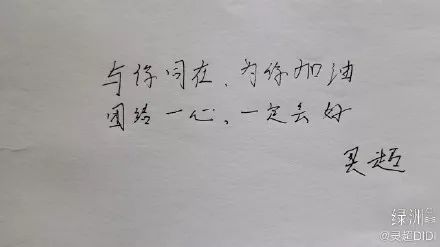 与你同在，为你加油
团结一心，一定会好
灵超
绿洲
@灵超DIDI